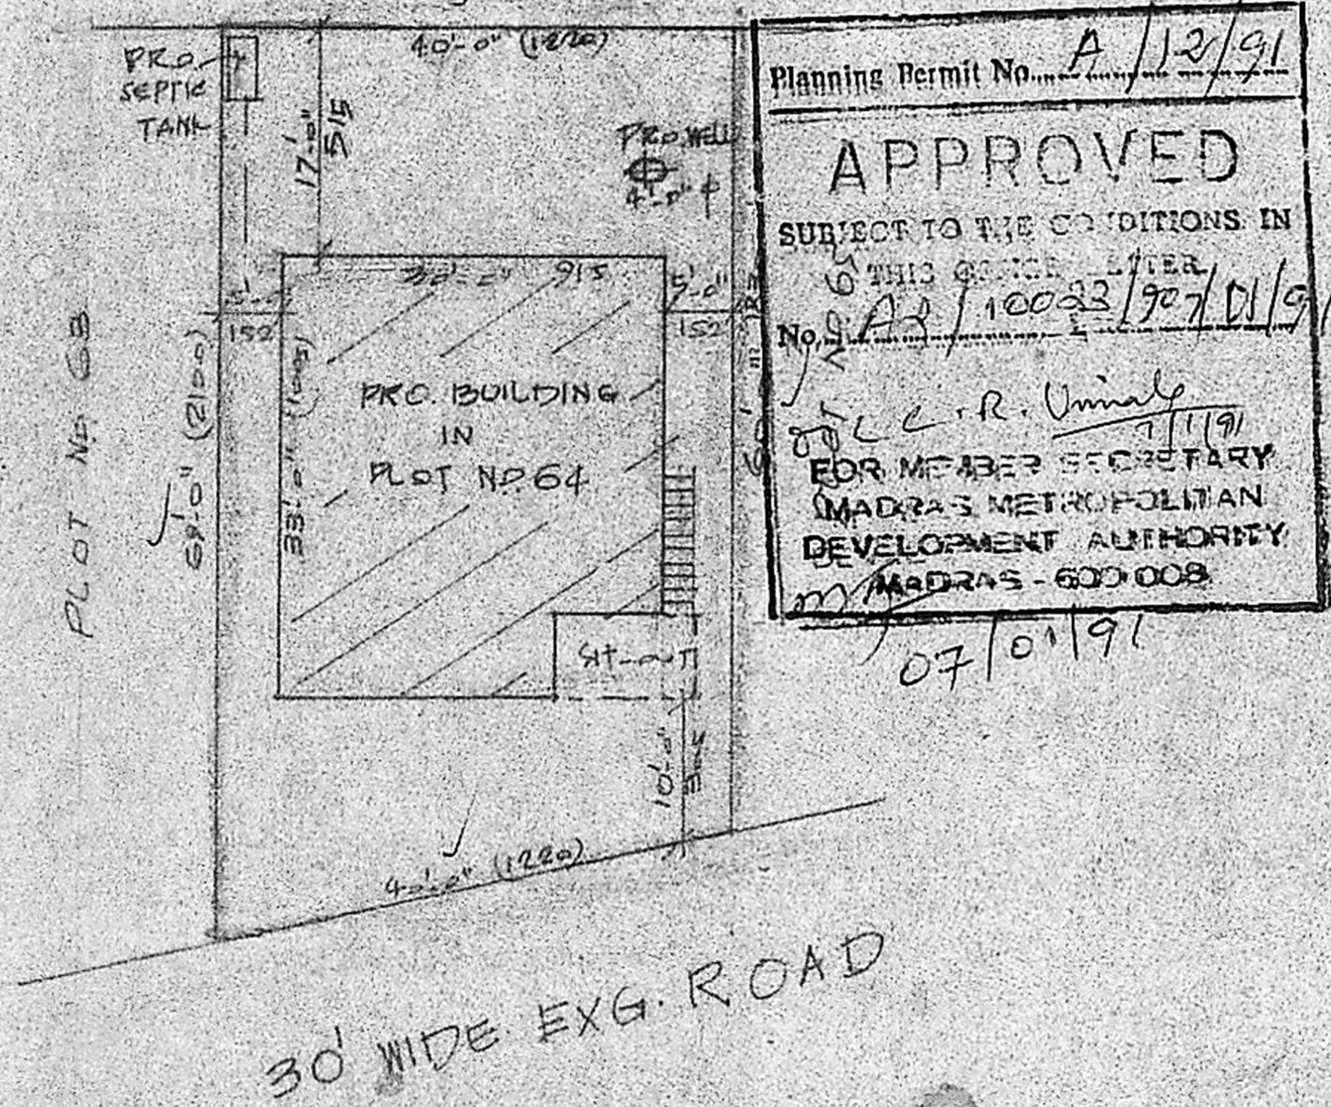 40'-0" (1220)
PRO
SEPTIC
TANK
17'-0"
515
PRO. WELL
4'-0" φ
30'-0" 915
5'-0"
152
5'-0"
152
PLOT NO 63
69'-0" (2100)
33'-0" (1005)
PRO. BUILDING
IN
PLOT NO. 64
SIT-OUT
10'-0"
304
40'-0" (1220)
30' WIDE EXG. ROAD
Planning Permit No. A/12/91
APPROVED
SUBJECT TO THE CONDITIONS IN
THIS OFFICE LETTER
No.
FOR MEMBER SECRETARY
MADRAS METROPOLITAN
DEVELOPMENT AUTHORITY
MADRAS - 600 008
07/01/91